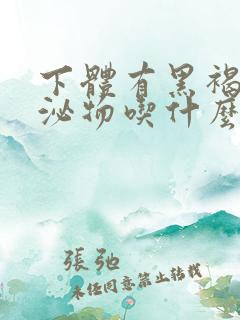 下體有黑褐
泌物喫什麽
張弛
未任同意禁止转载